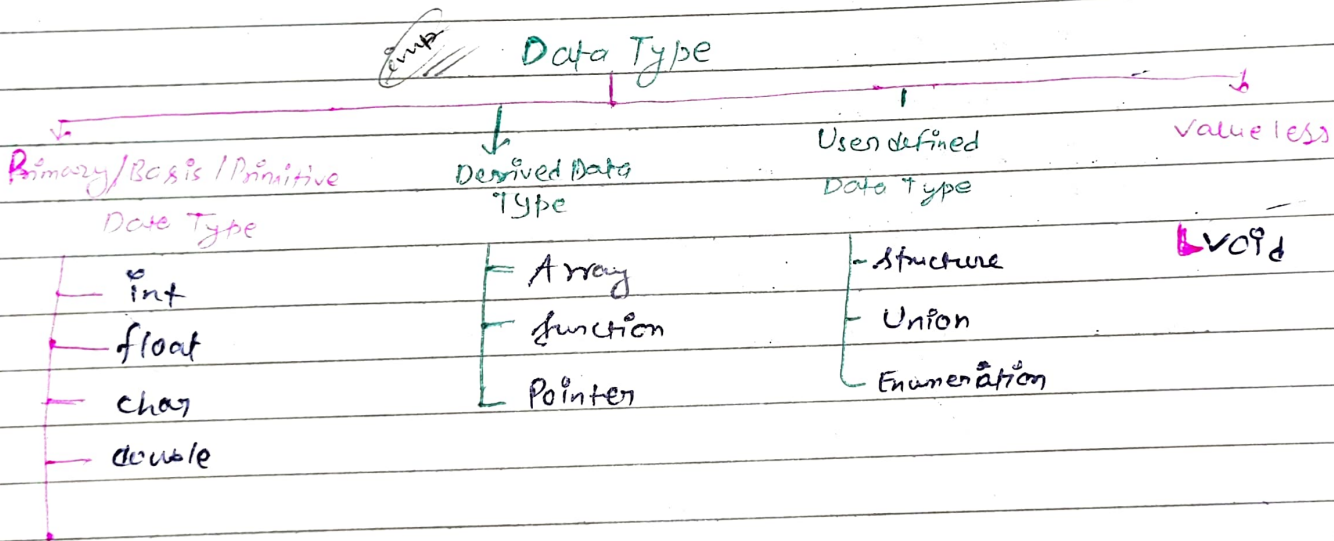 imp
Data Type
Primary/Basis/Primitive
Date Type
int
float
char
double
Derived Data
Type
Array
function
Pointer
User defined
Data Type
structure
Union
Enumeration
Valueless
void